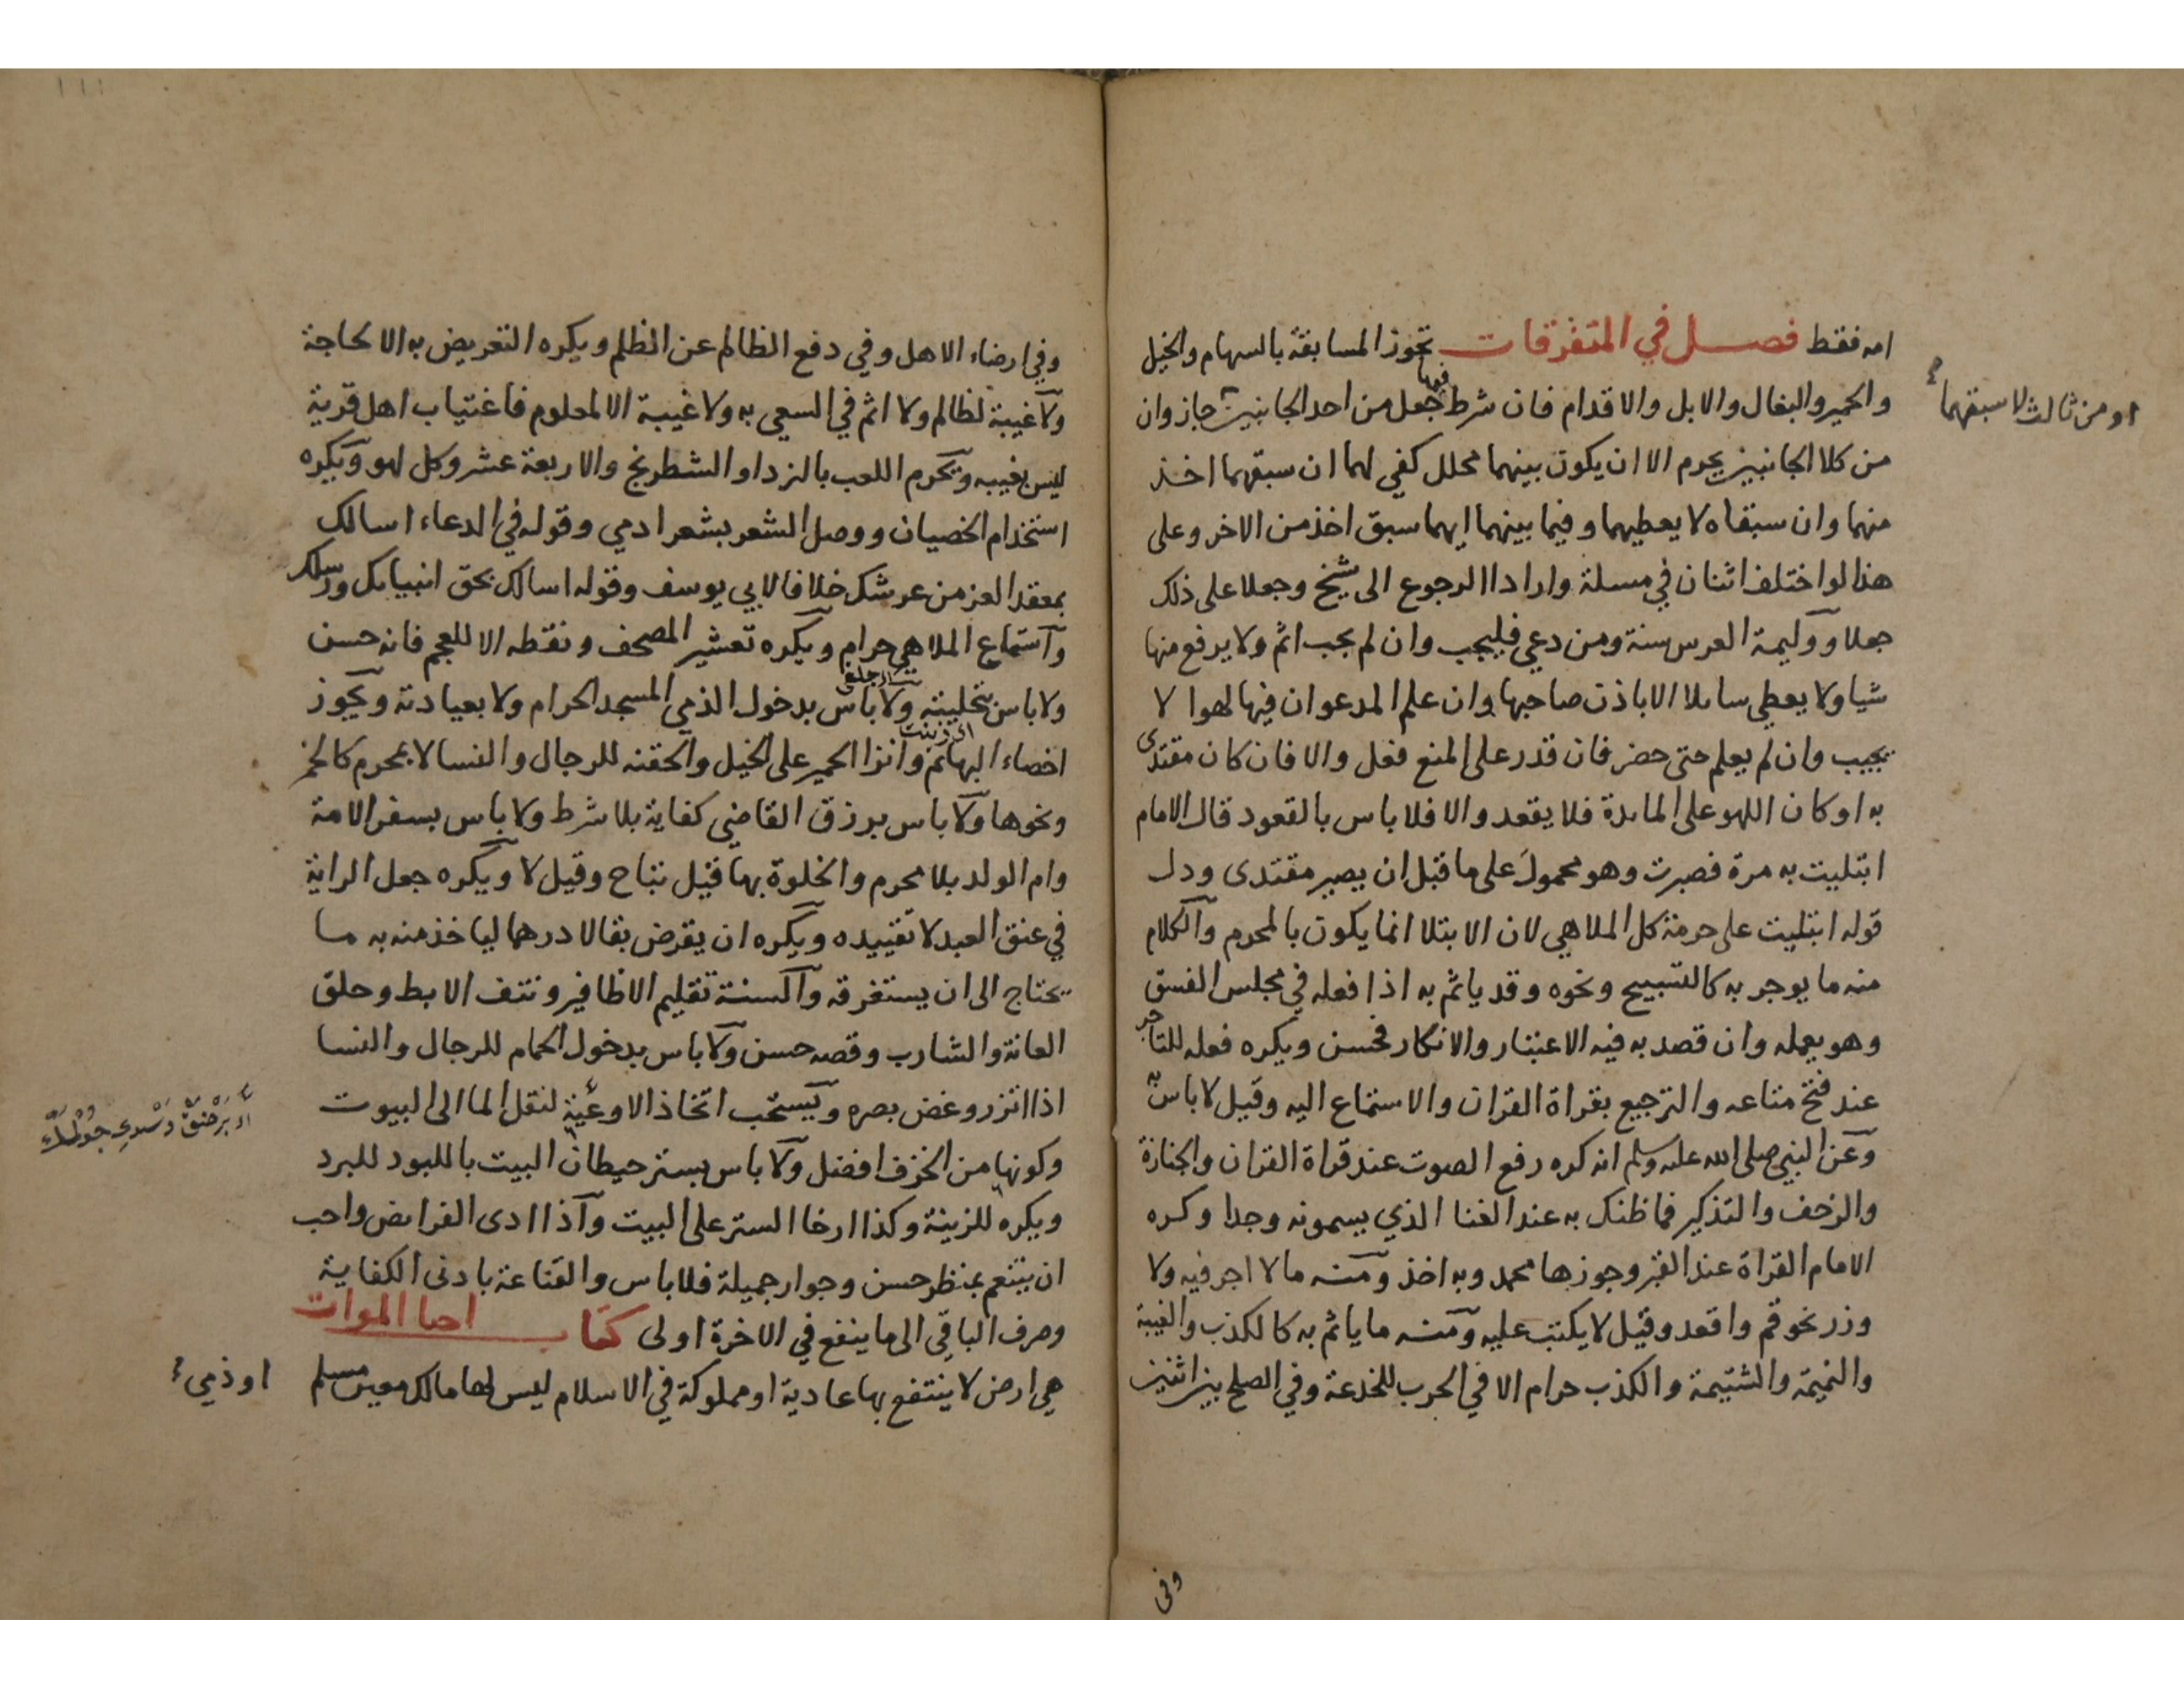 امه فقط فصل في المتفرقات تجوز المسابقة بالسهام والخيل
والحمير والبغال والابل والاقدام فان شرط فيها جعل من احد الجانبين جاز وان
او من ثالث لا سبقهما
من كلا الجانبين يحرم الا ان يكون بينهما محلل كفي لهما ان سبقهما اخذ
منهما وان سبقاه لا يعطيهما وفيما بينهما ايهما سبق اخذ من الاخر وعلى
هذا لو اختلف اثنان في مسلة وارادا الرجوع الى شيخ وجعلا على ذلك
جعلا ووليمة العرس سنة ومن دعي فليجب وان لم يجب اثم ولا يرفع منها
شيا ولا يعطي سايلا الا باذن صاحبها وان علم المدعو ان فيها لهوا لا
يجيب وان لم يعلم حتى حضر فان قدر على المنع فعل والا فان كان مقتدى
به او كان اللهو على المايدة فلا يقعد والا فلا باس بالقعود قال الامام
ابتليت به مرة فصبرت وهو محمول على ما قبل ان يصير مقتدى ودل
قوله ابتليت على حرمة كل الملاهي لان الابتلا انما يكون بالمحرم والكلام
منه ما يوجر به كالتسبيح ونحوه وقد ياثم به اذا فعله في مجلس الفسق
وهو يعمله وان قصد به فيه الاعتبار والانكار فحسن ويكره فعله للتاجر
عند فتح متاعه والترجيع بقراة القران والاستماع اليه وقيل لا باس به
وعن النبي صلى الله عليه وسلم انه كره رفع الصوت عند قراة القران والجنازة
والزحف والتذكير فما ظنك به عند الغنا الذي يسمونه وجدا وكره
الامام القراة عند القبر وجوزها محمد وبه اخذ ومنه ما لا اجر فيه ولا
وزر نحو قم واقعد وقيل لا يكتب عليه ومنه ما ياثم به كالكذب والغيبة
والنميمة والشتيمة والكذب حرام الا في الحرب للخدعة وفي الصلح بين اثنين
وفي
وفي ارضاء الاهل وفي دفع الظالم عن الظلم ويكره التعريض به الا لحاجة
ولا غيبة لظالم ولا اثم في السعي به ولا غيبة الا لمعلوم فاغتياب اهل قرية
ليس بغيبه ويحرم اللعب بالنرد او الشطرنج والاربعة عشر وكل لهو ويكره
استخدام الخصيان ووصل الشعر بشعر ادمي وقوله في الدعاء اسالك
بمعقد العز من عرشك خلافا لابي يوسف وقوله اسالك بحق انبيايك ورسلك
واستماع الملاهي حرام ويكره تعشير المصحف ونقطه الا للعجم فانه حسن
ولا باس بتحليته ولا باس بدخول الذمي المسجد الحرام ولا بعيادته ويجوز
اخصاء البهائم وانزا الحمير على الخيل والحقنه للرجال والنسا لا بمحرم كالخمر
ونحوها ولا باس برزق القاضي كفاية بلا شرط ولا باس بسفر الامة
وام الولد بلا محرم والخلوة بها قيل تباح وقيل لا ويكره جعل الراية
في عنق العبد لا تقييده ويكره ان يقرض بقالا درهما لياخذ منه به ما
يحتاج الى ان يستغرقه والسنة تقليم الاظافير ونتف الابط وحلق
العانة والشارب وقصه حسن ولا باس بدخول الحمام للرجال والنسا
اذا اتزر وغض بصره ويستحب اتخاذ الاوعية لنقل الما الى البيوت
وكونها من الخزف افضل ولا باس بستر حيطان البيت باللبود للبرد
ويكره للزينة وكذا ارخا الستر على البيت واذا ادى الفرايض واحب
ان يتنعم بمنظر حسن وجوار جميلة فلا باس والقناعة بادنى الكفاية
وصرف الباقي الى ما ينفع في الاخرة اولى كتاب احيا الموات
هي ارض لا ينتفع بها عادية او مملوكة في الاسلام ليس لها مالك معين مسلم
او ذمي